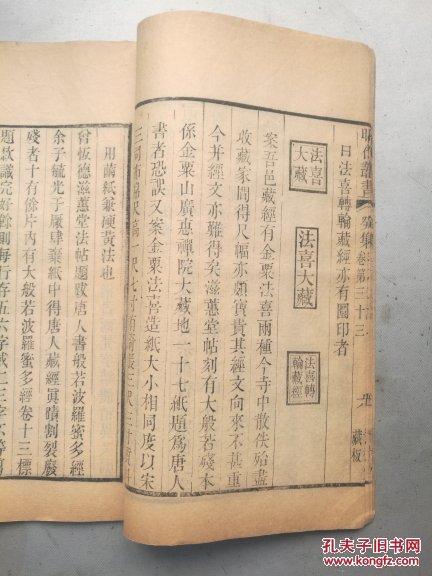 昭代叢書
癸集 卷第三十三
藏板
日法喜轉輪藏經亦有圓印者
法喜大藏
法喜大藏
法喜轉輪藏經
案吾邑藏經有金粟法喜兩種今寺中散佚殆盡
收藏家間得尺幅亦頗寶貴其經文向來不甚重
今并經文亦難得矣滋蕙堂帖刻有大般若殘本
係金粟山廣惠禪院大藏地一十七紙題爲唐人
書者恐誤又案金粟法喜造紙大小相同度以宋
三司布帛尺高一尺七寸
用繭紙兼硬黃法也
曾恆德滋蕙堂法帖題跋唐人書般若波羅蜜多經
余子毓光于廠肆棄紙中得唐人藏經眞蹟割裂廢
殘者十有餘片內有大般若波羅蜜多經卷十三標
題款識完好餘則每行存五六字或二三字不等
孔夫子旧书网